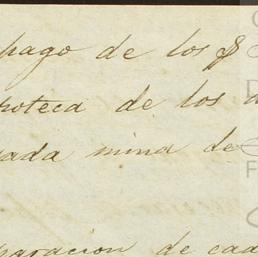 pago de los $
poteca de los
ada mina de
paracion de cad